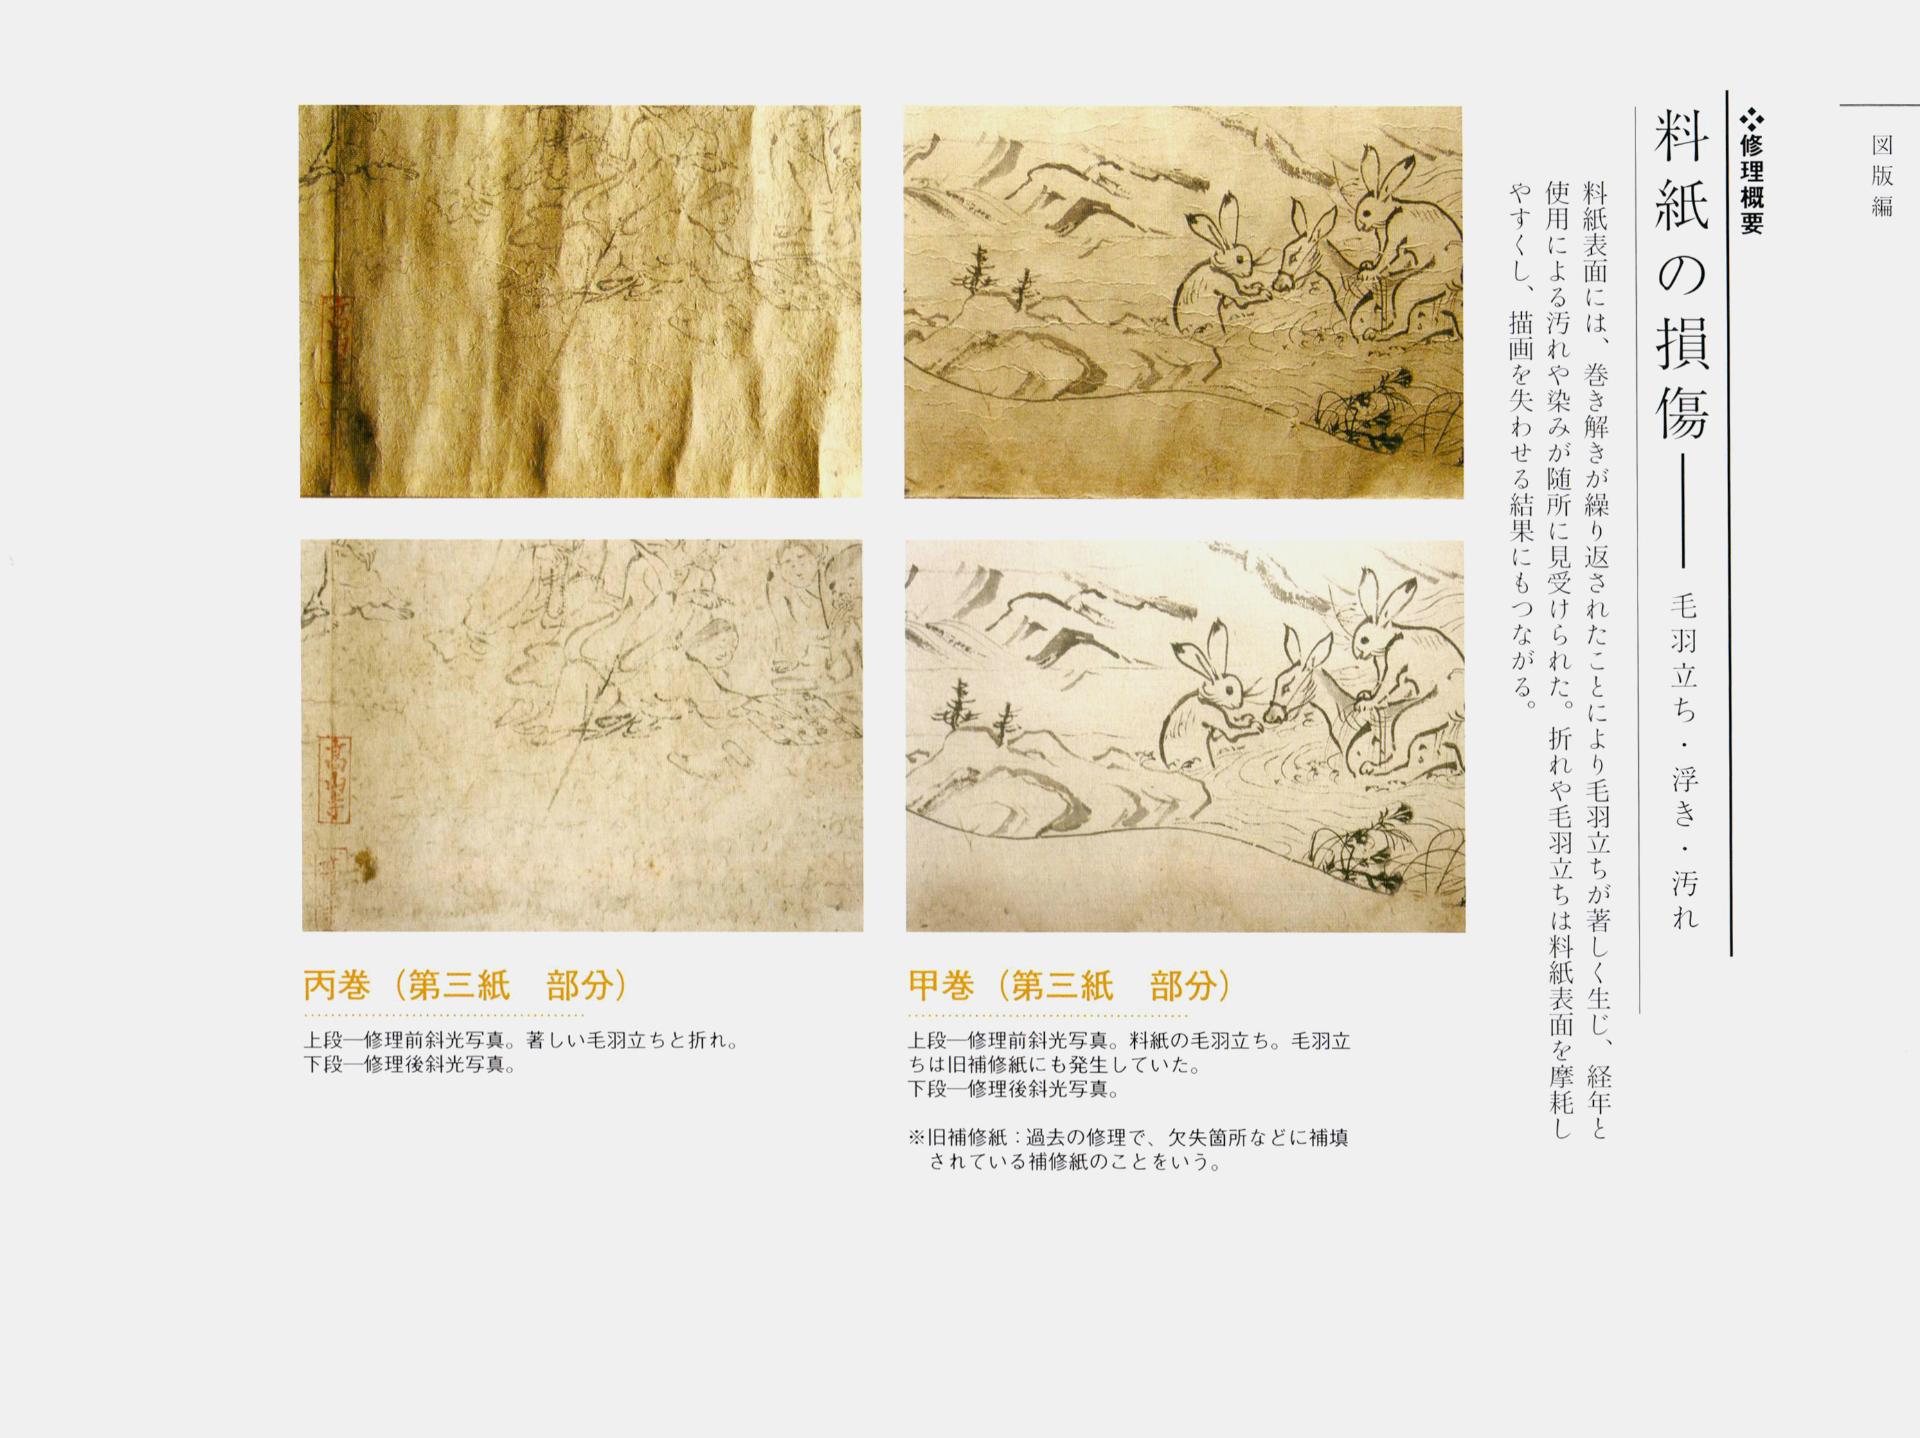 図版編
修理概要
料紙の損傷――毛羽立ち・浮き・汚れ
料紙表面には、巻き解きが繰り返されたことにより毛羽立ちが著しく生じ、経年と
使用による汚れや染みが随所に見受けられた。折れや毛羽立ちは料紙表面を摩耗し
やすくし、描画を失わせる結果にもつながる。
甲巻（第三紙　部分）
上段―修理前斜光写真。料紙の毛羽立ち。毛羽立
ちは旧補修紙にも発生していた。
下段―修理後斜光写真。
※旧補修紙：過去の修理で、欠失箇所などに補填
されている補修紙のことをいう。
丙巻（第三紙　部分）
上段―修理前斜光写真。著しい毛羽立ちと折れ。
下段―修理後斜光写真。
高山寺